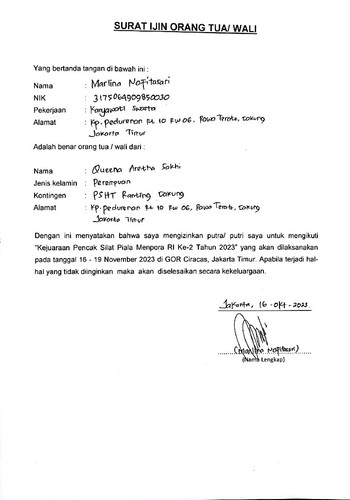 SURAT IJIN ORANG TUA/ WALI
Yang bertanda tangan di bawah ini :
Nama : Marlina Nofitasari
NIK : 3175064909850030
Pekerjaan : Karyawati Swasta
Alamat : Kp. pedurenan Rt 10 Rw 06. Rawa Terate, Cakung
Jakarta Timur
Adalah benar orang tua / wali dari :
Nama : Queena Aretha Sakhi
Jenis kelamin : Perempuan
Kontingen : PSHT Ranting Cakung
Alamat : Kp. pedurenan Rt 10 Rw 06, Rawa Terate, Cakung
Jakarta Timur
Dengan ini menyatakan bahwa saya mengizinkan putra/ putri saya untuk mengikuti
"Kejuaraan Pencak Silat Piala Menpora RI Ke-2 Tahun 2023" yang akan dilaksanakan
pada tanggal 16 - 19 November 2023 di GOR Ciracas, Jakarta Timur. Apabila terjadi hal-
hal yang tidak diinginkan maka akan diselesaikan secara kekeluargaan.
Jakarta, 16 - Okt - 2023
(Marlina Nofitasari)
(Nama Lengkap)